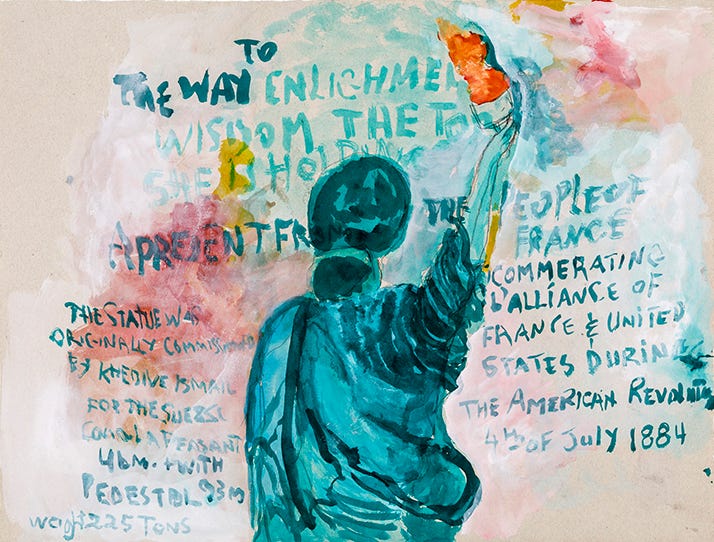 TO
THE WAY ENLIGHMEN
WISDOM, THE TO
SHE IS HOLDING
A PRESENT FR THE PEOPLE OF
FRANCE
THE STATUE WAS
ORIGINALLY COMMISSIONED
BY KHEDIVE ISMAIL
FOR THE
A PEASANT
46M. + WITH
PEDESTAL 93M
weight 225 TONS
COMMERATING
L'ALLIANCE OF
FRANCE & UNITED
STATES DURING
THE AMERICAN REVOLUTI
4th OF July 1884